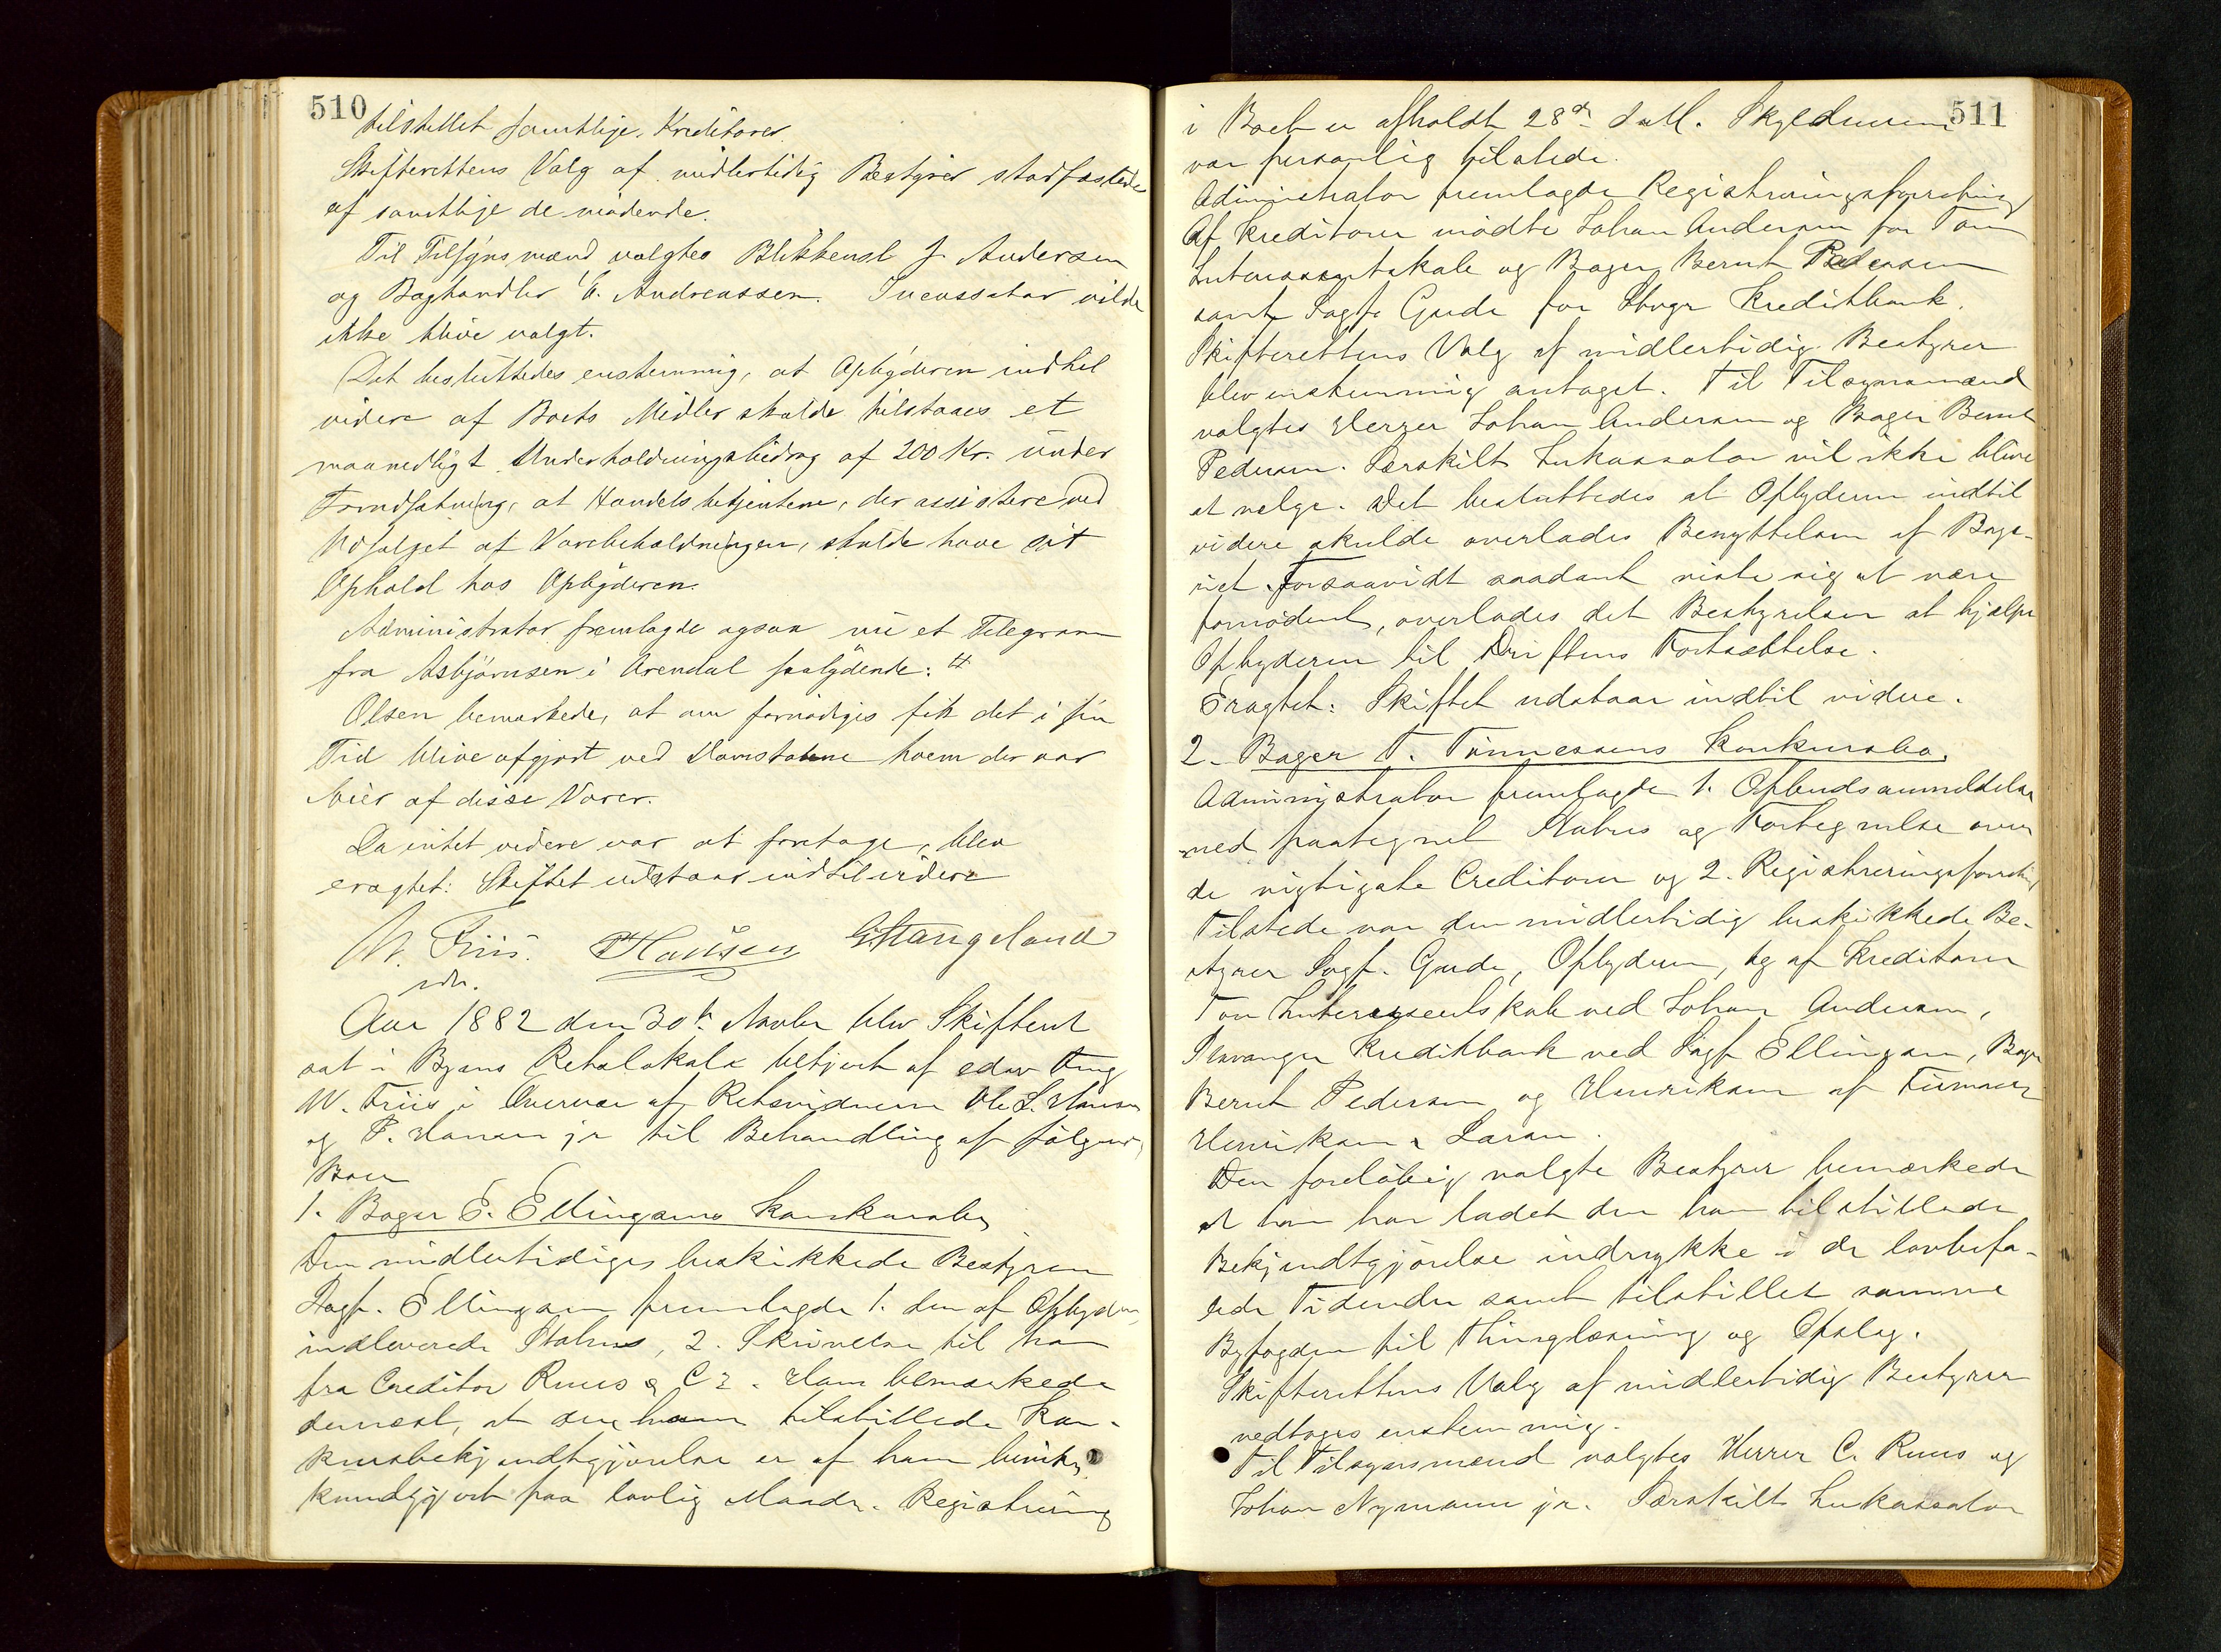 510
tilstillet samtlige Kreditorer.
Skifterettens Valg af midlertidig Bestyrer stadfæstedes
af samtlige de mødende.
Til Tilsynsmænd valgtes Blikkensl J. Andersen
og Boghandler C. Andreassen. Incassator vilde
ikke blive valgt.
Det besluttedes enstemmig, at Opbyderen indtil
videre af Boets Midler skulde tilstaaes et
maanedligt Underholdningsbidrag af 200 Kr. under
Forudsætning, at Handelsbetjentene, der assisterer ved
Udsalget af Varebeholdningen, skulde have sit
Ophold hos Opbyderen.
Administrator fremlagde ogsaa nu et Telegram
fra Asbjørnsen i Arendal saalydende:
Olsen bemærkede, at om fornødiges fik det i sin
Tid blive afgjort ved Domstolene hvem der var
Eier af disse Varer.
Da intet videre var at foretage, blev
eragtet: Skiftet udstaar indtil videre
W. Friis. Hansen G Stangeland
edv.
Aar 1882 den 30te Novber blev Skifteret
sat i Byens Retslokale betjent af edsv Fmg
W. Friis i Overvær af Retsvidnerne Ole L. Hansen
og P. Hansen jr til Behandling af følgende
Boer
1. Bager E. Ellingsens Konkursbo
Den midlertidiges beskikkede Bestyrer
Sagf. Ellingsen fremlagde 1. den af Opbyderen
indleverede Status, 2. Skrivelse til ham
fra Creditor Ruus & Co. Han bemærkede
dernæst, at den ham tilstillede Kon-
kursbekjendtgjørelse er af ham
kundgjort paa lovlig Maade. Registrering
511
i Boet er afholdt 28de ds M. Skyldneren
var personlig tilstede.
Administrator fremlagde Registreringsforretning
Af Kreditorer mødte Johan Andersen for Tou
Interessentskab og Bager Bernt Pedersen
samt Sagf. Gude for Stvgr Kreditbank.
Skifterettens Valg af midlertidig Bestyrer
blev enstemmig antaget. Til Tilsynsmænd
valgtes Herrer Johan Andersen og Bager Bernt
Pedersen. Særskilt Inkassator vil ikke blive
at vælge. Det besluttedes at Opbyderen indtil
videre skulde overlades Benyttelsen af Bage-
riet. Forsaavidt saadant viste sig at være
fornødent, overlades det Bestyrelsen at hjælpe
Opbyderen til Driftens Fortsættelse.
Eragtet: Skiftet udstaar indtil videre.
2. Bager T. Tønnessens Konkursbo.
Administrator fremlagde 1. Opbudsanmeldelse
med paategnet Status og Fortegnelse over
de vigtigste Creditorer og 2. Registreringsforretning
Tilstede var den midlertidig beskikkede Be-
styrer Sagf. Gude, Opbyderen, og af Kreditorer
Tou Interessentskab ved Johan Andersen,
Stavanger Kreditbank ved Sagf Ellingsen, Bager
Bernt Pedersen og Henriksen af Firmaet
Henriksen & Larsen.
Den foreløbig valgte Bestyrer bemærkede
at han har ladet den ham tilstillede
Bekjendtgjørelse indrykke i de lovbefa-
lede Tidender samt tilstillet samme
Byfogden til Thinglæsning og Opslag.
Skifterettens Valg af midlertidig Bestyrer
vedtoges enstemmig.
Til Tilsynsmænd valgtes Herrer C. Ruus og
Johan Nymann jr. Særskilt Inkassator